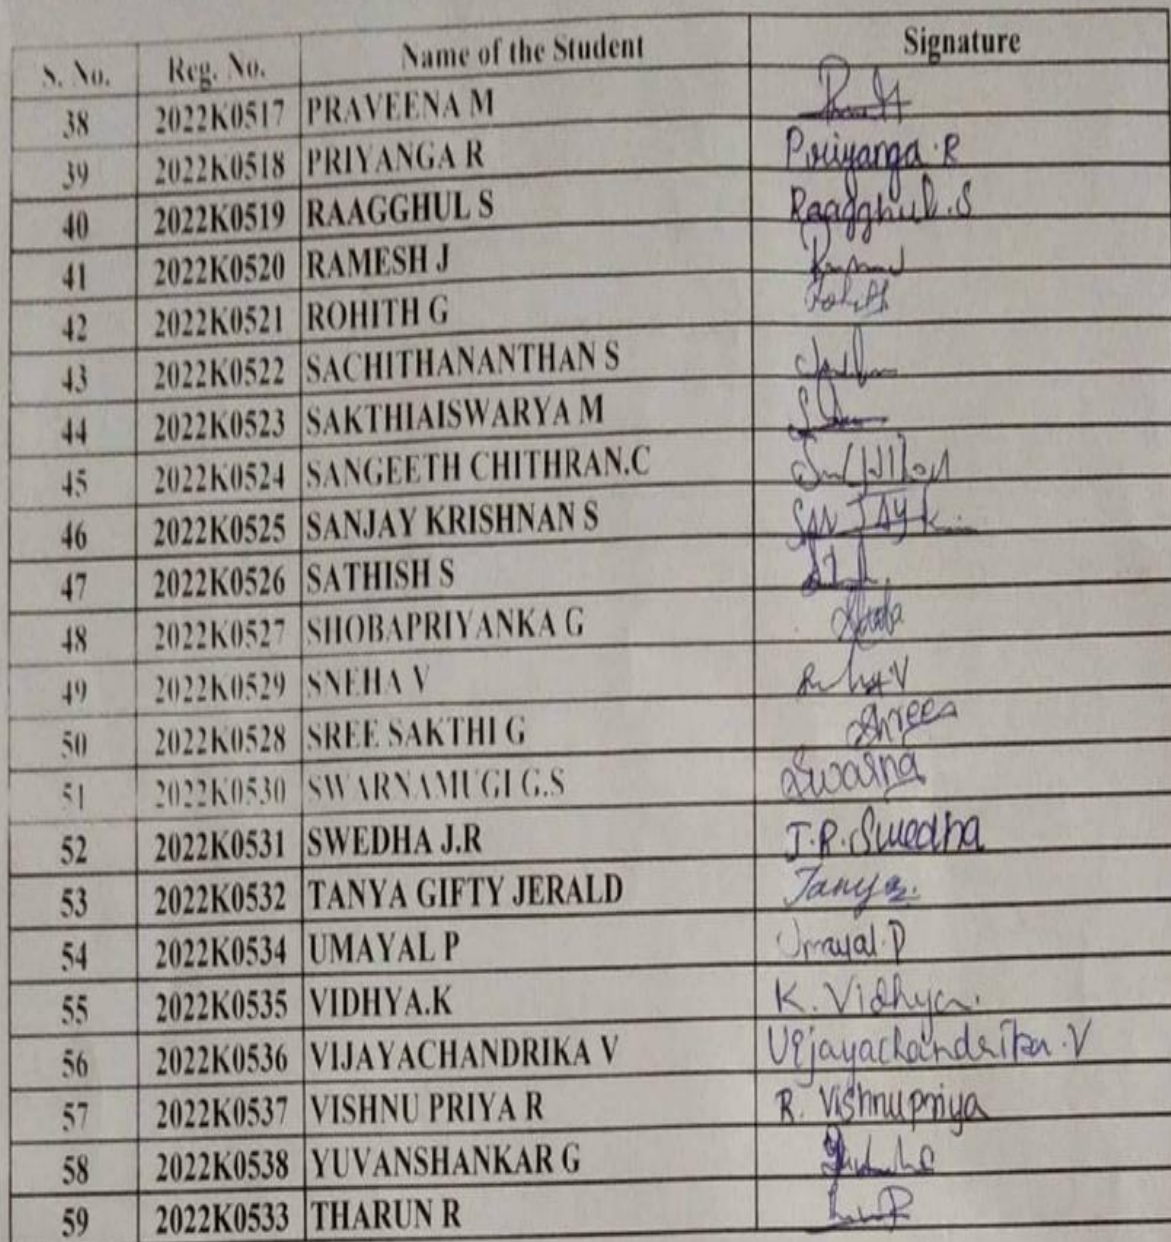 S. No. Reg. No. Name of the Student Signature
38 2022K0517 PRAVEENA M
39 2022K0518 PRIYANGA R Priyanga R
40 2022K0519 RAAGGHUL S Raagghul.S
41 2022K0520 RAMESH J
42 2022K0521 ROHITH G Rohith
43 2022K0522 SACHITHANANTHAN S
44 2022K0523 SAKTHIAISWARYA M
45 2022K0524 SANGEETH CHITHRAN.C
46 2022K0525 SANJAY KRISHNAN S SANJAY K
47 2022K0526 SATHISH S
48 2022K0527 SHOBAPRIYANKA G Shoba
49 2022K0529 SNEHA V
50 2022K0528 SREE SAKTHI G Shree
51 2022K0530 SWARNAMUGI G.S Swarna
52 2022K0531 SWEDHA J.R J.R.Swedha
53 2022K0532 TANYA GIFTY JERALD Tanya.
54 2022K0534 UMAYAL P Umayal.P
55 2022K0535 VIDHYA.K K. Vidhya.
56 2022K0536 VIJAYACHANDRIKA V Vijayachandrika.V
57 2022K0537 VISHNU PRIYA R R. Vishnupriya
58 2022K0538 YUVANSHANKAR G
59 2022K0533 THARUN R